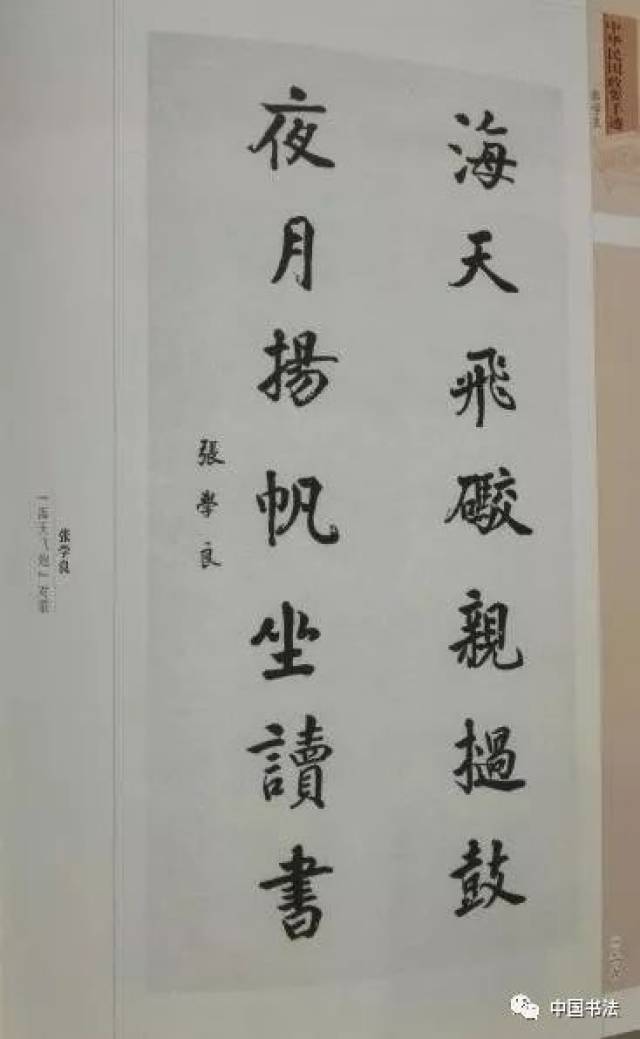 海天飛礮親撾鼓
夜月揚帆坐讀書
張學良
张学良
中华民国政要手迹
中国书法